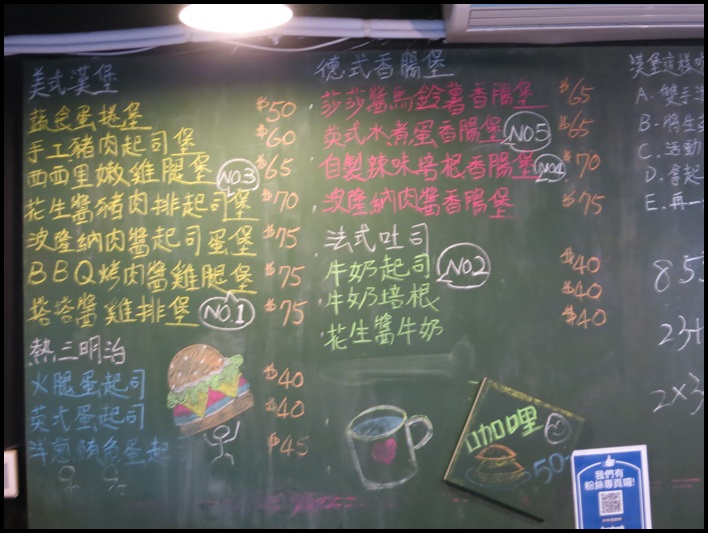 美式漢堡
蔬食蛋捲堡 $50
手工豬肉起司堡 $60
西西里嫩雞腿堡 NO.3 $65
花生醬豬肉排起司堡 $70
波隆納肉醬起司蛋堡 $75
BBQ烤肉醬雞腿堡 $75
塔塔醬雞排堡 NO.1 $75
熱三明治
火腿蛋起司 $40
英式蛋起司 $40
洋蔥鮪魚蛋起 $45
德式香腸堡
莎莎醬馬鈴薯香腸堡 $65
英式水煮蛋香腸堡 NO.5 $65
自製辣味培根香腸堡 NO.4 $70
波隆納肉醬香腸堡 $75
法式吐司
牛奶起司 NO.2 $40
牛奶培根 $40
花生醬牛奶 $40
咖哩
50
漢堡這樣
A. 雙手
B. 將生
C. 活動
D. 拿起
E. 再一
85
23+
2×3
我們有
粉絲專頁囉!